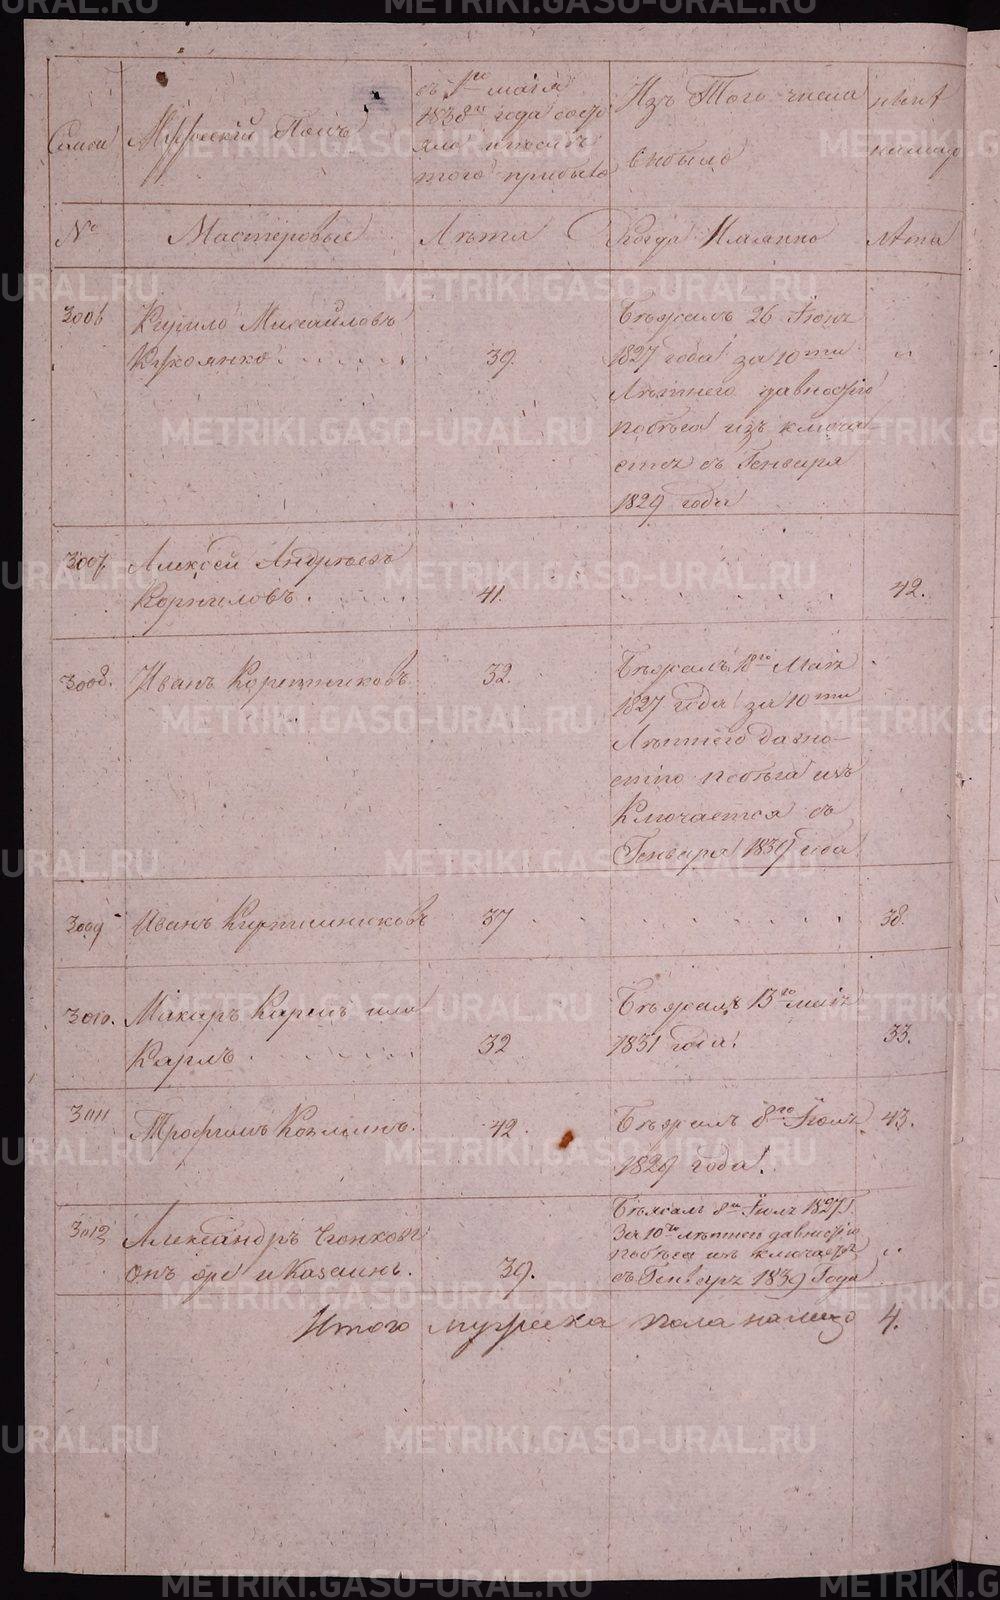 METRIKI.GASO-URAL.RU
Семьи
Мужескій Полъ
съ 1го маія
1838го года состо
яло и после
того прибыло
Изъ Того числа
выбыло
ныне
налицо
№
Мастеровые
Лѣта
Когда Имянно
Лѣта
3006
Кирило Михайловъ
39.
Бѣжалъ 26 Іюня
1827 года за 10ти
Лѣтнею давностію
побѣга изъ ключа
етсе съ Генваря
1829 года
„
3007.
Алексей Андреевъ
Корниловъ
41.
42.
3008.
Иванъ Корешниковъ
32.
Бѣжалъ 18го Маія
1827 года за 10ти
Лѣтнею давно-
стію побѣга изъ
Ключается съ
Генваря 1839 года
3009
Иванъ Кирпишниковъ
37
38.
3010.
Макаръ Карпъ или
Карлъ
32
Бѣжалъ 13го маія
1831 года.
33.
3011
Трофимъ Козминъ.
42.
Бѣжалъ 8го Іюля
1829 года.
43.
3012
Александръ
онъ же и Казаинъ.
39.
Бѣжалъ 8го Іюля 1827 г.
За 10ти лѣтнею давностію
побѣга изъ ключается
съ Генваря 1839 Года
„
Итого мужеска пола налицо 4.